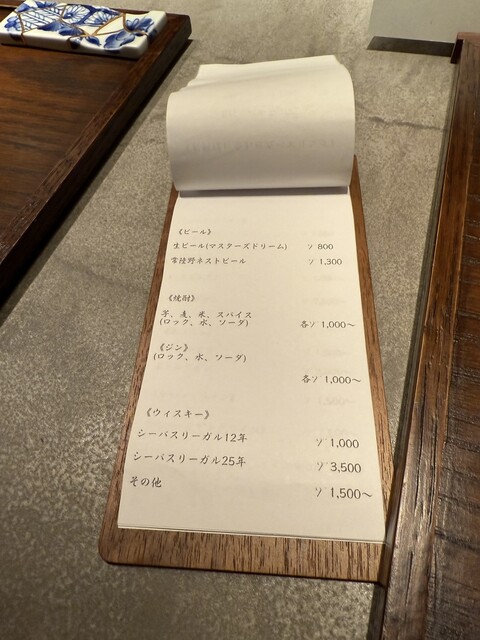 《ビール》
生ビール(マスターズドリーム) ¥ 800
常陸野ネストビール ¥ 1,300
《焼酎》
芋、麦、米、スパイス
(ロック、水、ソーダ) 各¥ 1,000〜
《ジン》
(ロック、水、ソーダ)
各¥ 1,000〜
《ウィスキー》
シーバスリーガル12年 ¥ 1,000
シーバスリーガル25年 ¥ 3,500
その他 ¥ 1,500〜